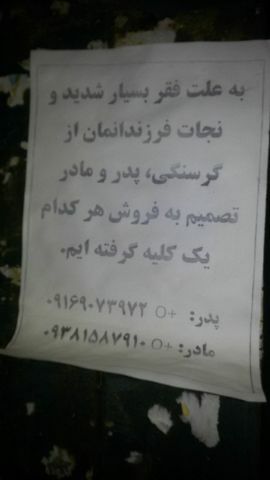 به علت فقر بسیار شدید و
نجات فرزندانمان از
گرسنگی، پدر و مادر
تصمیم به فروش هر کدام
یک کلیه گرفته ایم.
پدر: O+ ۰۹۱۶۹۰۷۳۹۷۲
مادر: O+ ۰۹۳۸۱۵۸۷۹۱۰